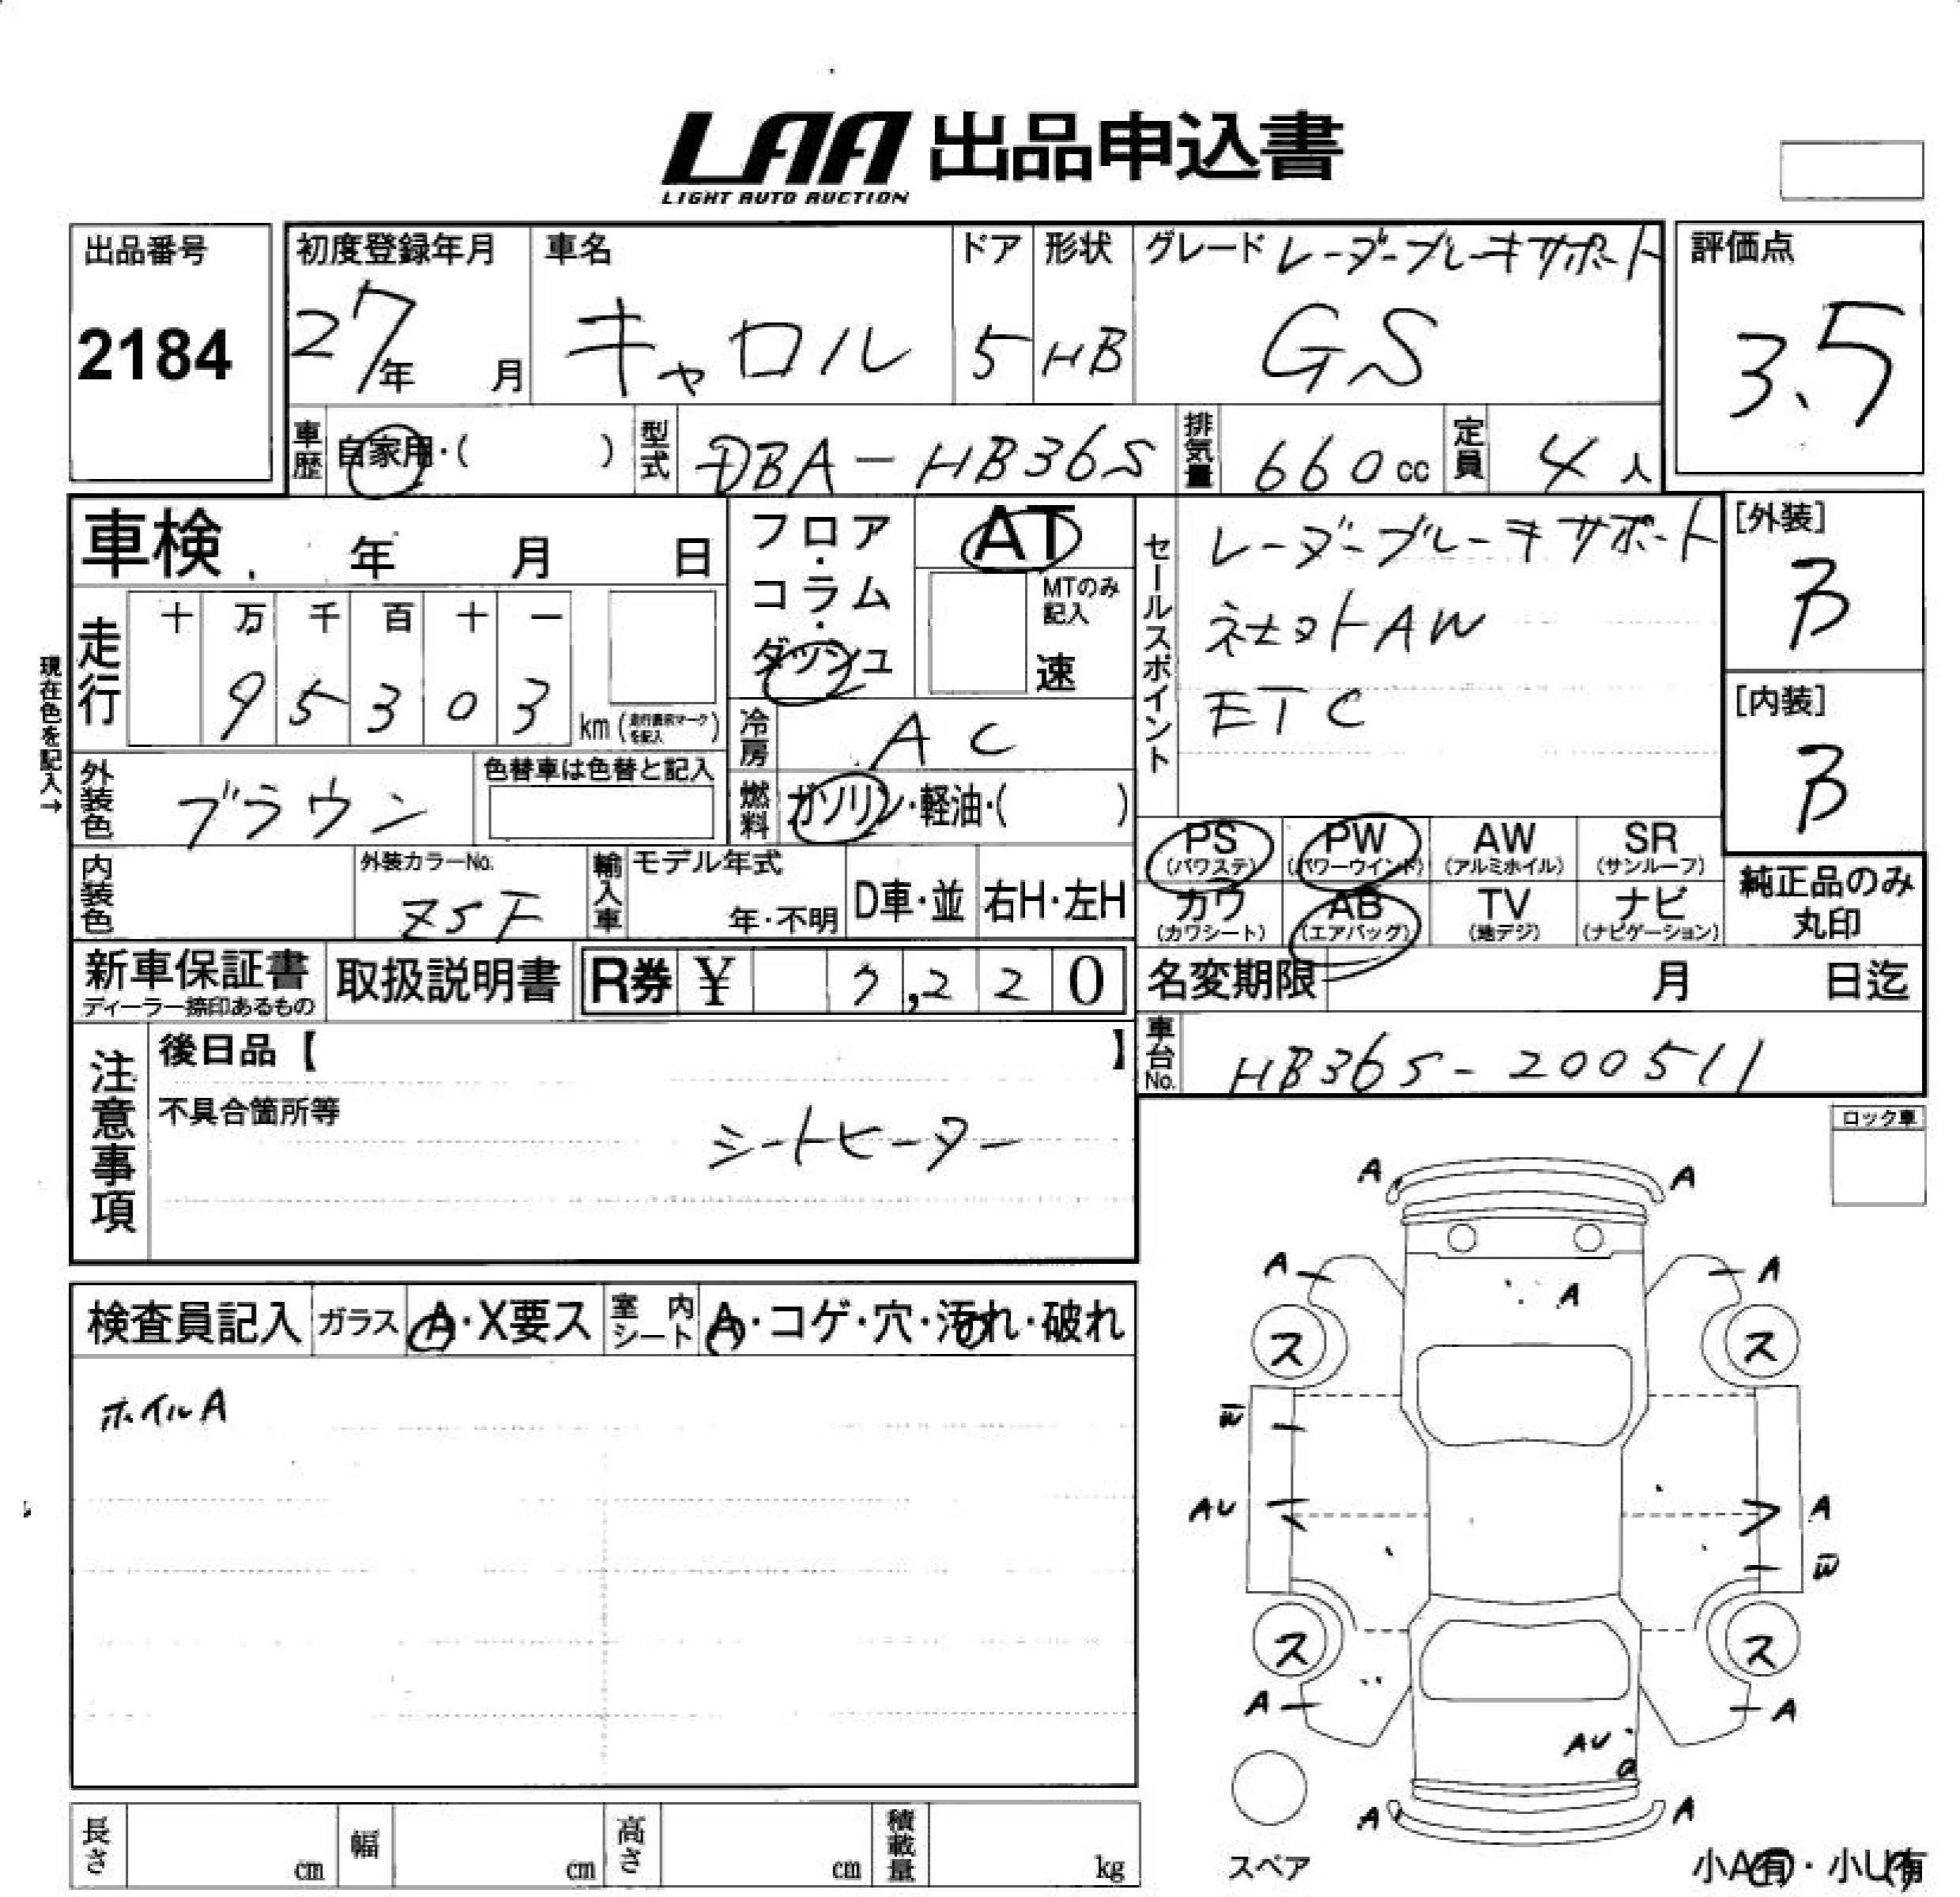 LAA 出品申込書
LIGHT AUTO AUCTION
出品番号
2184
初度登録年月
27年 月
車名
キャロル
ドア
5
形状
HB
グレード レーダーブレーキサポート
GS
評価点
3.5
車歴 自家用・( )
型式 DBA-HB36S
排気量 660cc
定員 4人
車検 年 月 日
フロア・コラム・ダッシュ
AT
MTのみ記入
速
セールスポイント
レーダーブレーキサポート
AW
ETC
[外装]
B
[内装]
B
現在色を記入→
走行
十 万 千 百 十 一
9 5 3 0 3 km
冷房 AC
外装色 ブラウン
色替車は色替と記入
燃料 ガソリン・軽油・( )
内装色
外装カラーNo.
Z5F
輸入車
モデル年式
年・不明
D車・並
右H・左H
PS (パワステ)
PW (パワーウインド)
AW (アルミホイル)
SR (サンルーフ)
カワ (カワシート)
AB (エアバッグ)
TV (地デジ)
ナビ (ナビゲーション)
純正品のみ
丸印
新車保証書
ディーラー捺印あるもの
取扱説明書
R券 ¥ ,220
名変期限 月 日迄
車台No. HB36S-200511
注意事項
後日品【 】
不具合箇所等
シートヒーター
ロック車
検査員記入
ガラス A・X要ス
室内シート A・コゲ・穴・汚れ・破れ
ホイルA
A A
A A
A
ス ス
W
AU A
W
ス ス
A A
AU
A A
スペア
小A有・小U有
長さ cm
幅 cm
高さ cm
積載量 kg